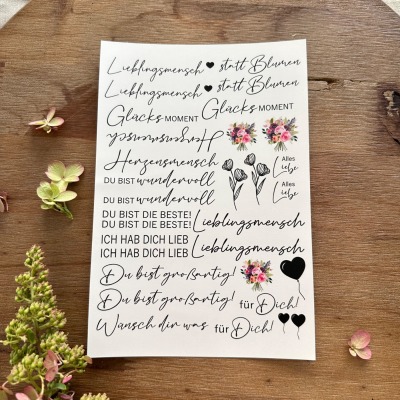 Lieblingsmensch statt Blumen
Lieblingsmensch statt Blumen
Glücks MOMENT Glücks MOMENT
Herzensmensch
Herzensmensch
Alles Liebe
DU BIST wundervoll
DU BIST wundervoll
Alles Liebe
DU BIST DIE BESTE!
DU BIST DIE BESTE!
Lieblingsmensch
ICH HAB DICH LIEB
ICH HAB DICH LIEB
Lieblingsmensch
Du bist großartig!
Du bist großartig! für Dich!
Wünsch dir was für Dich!